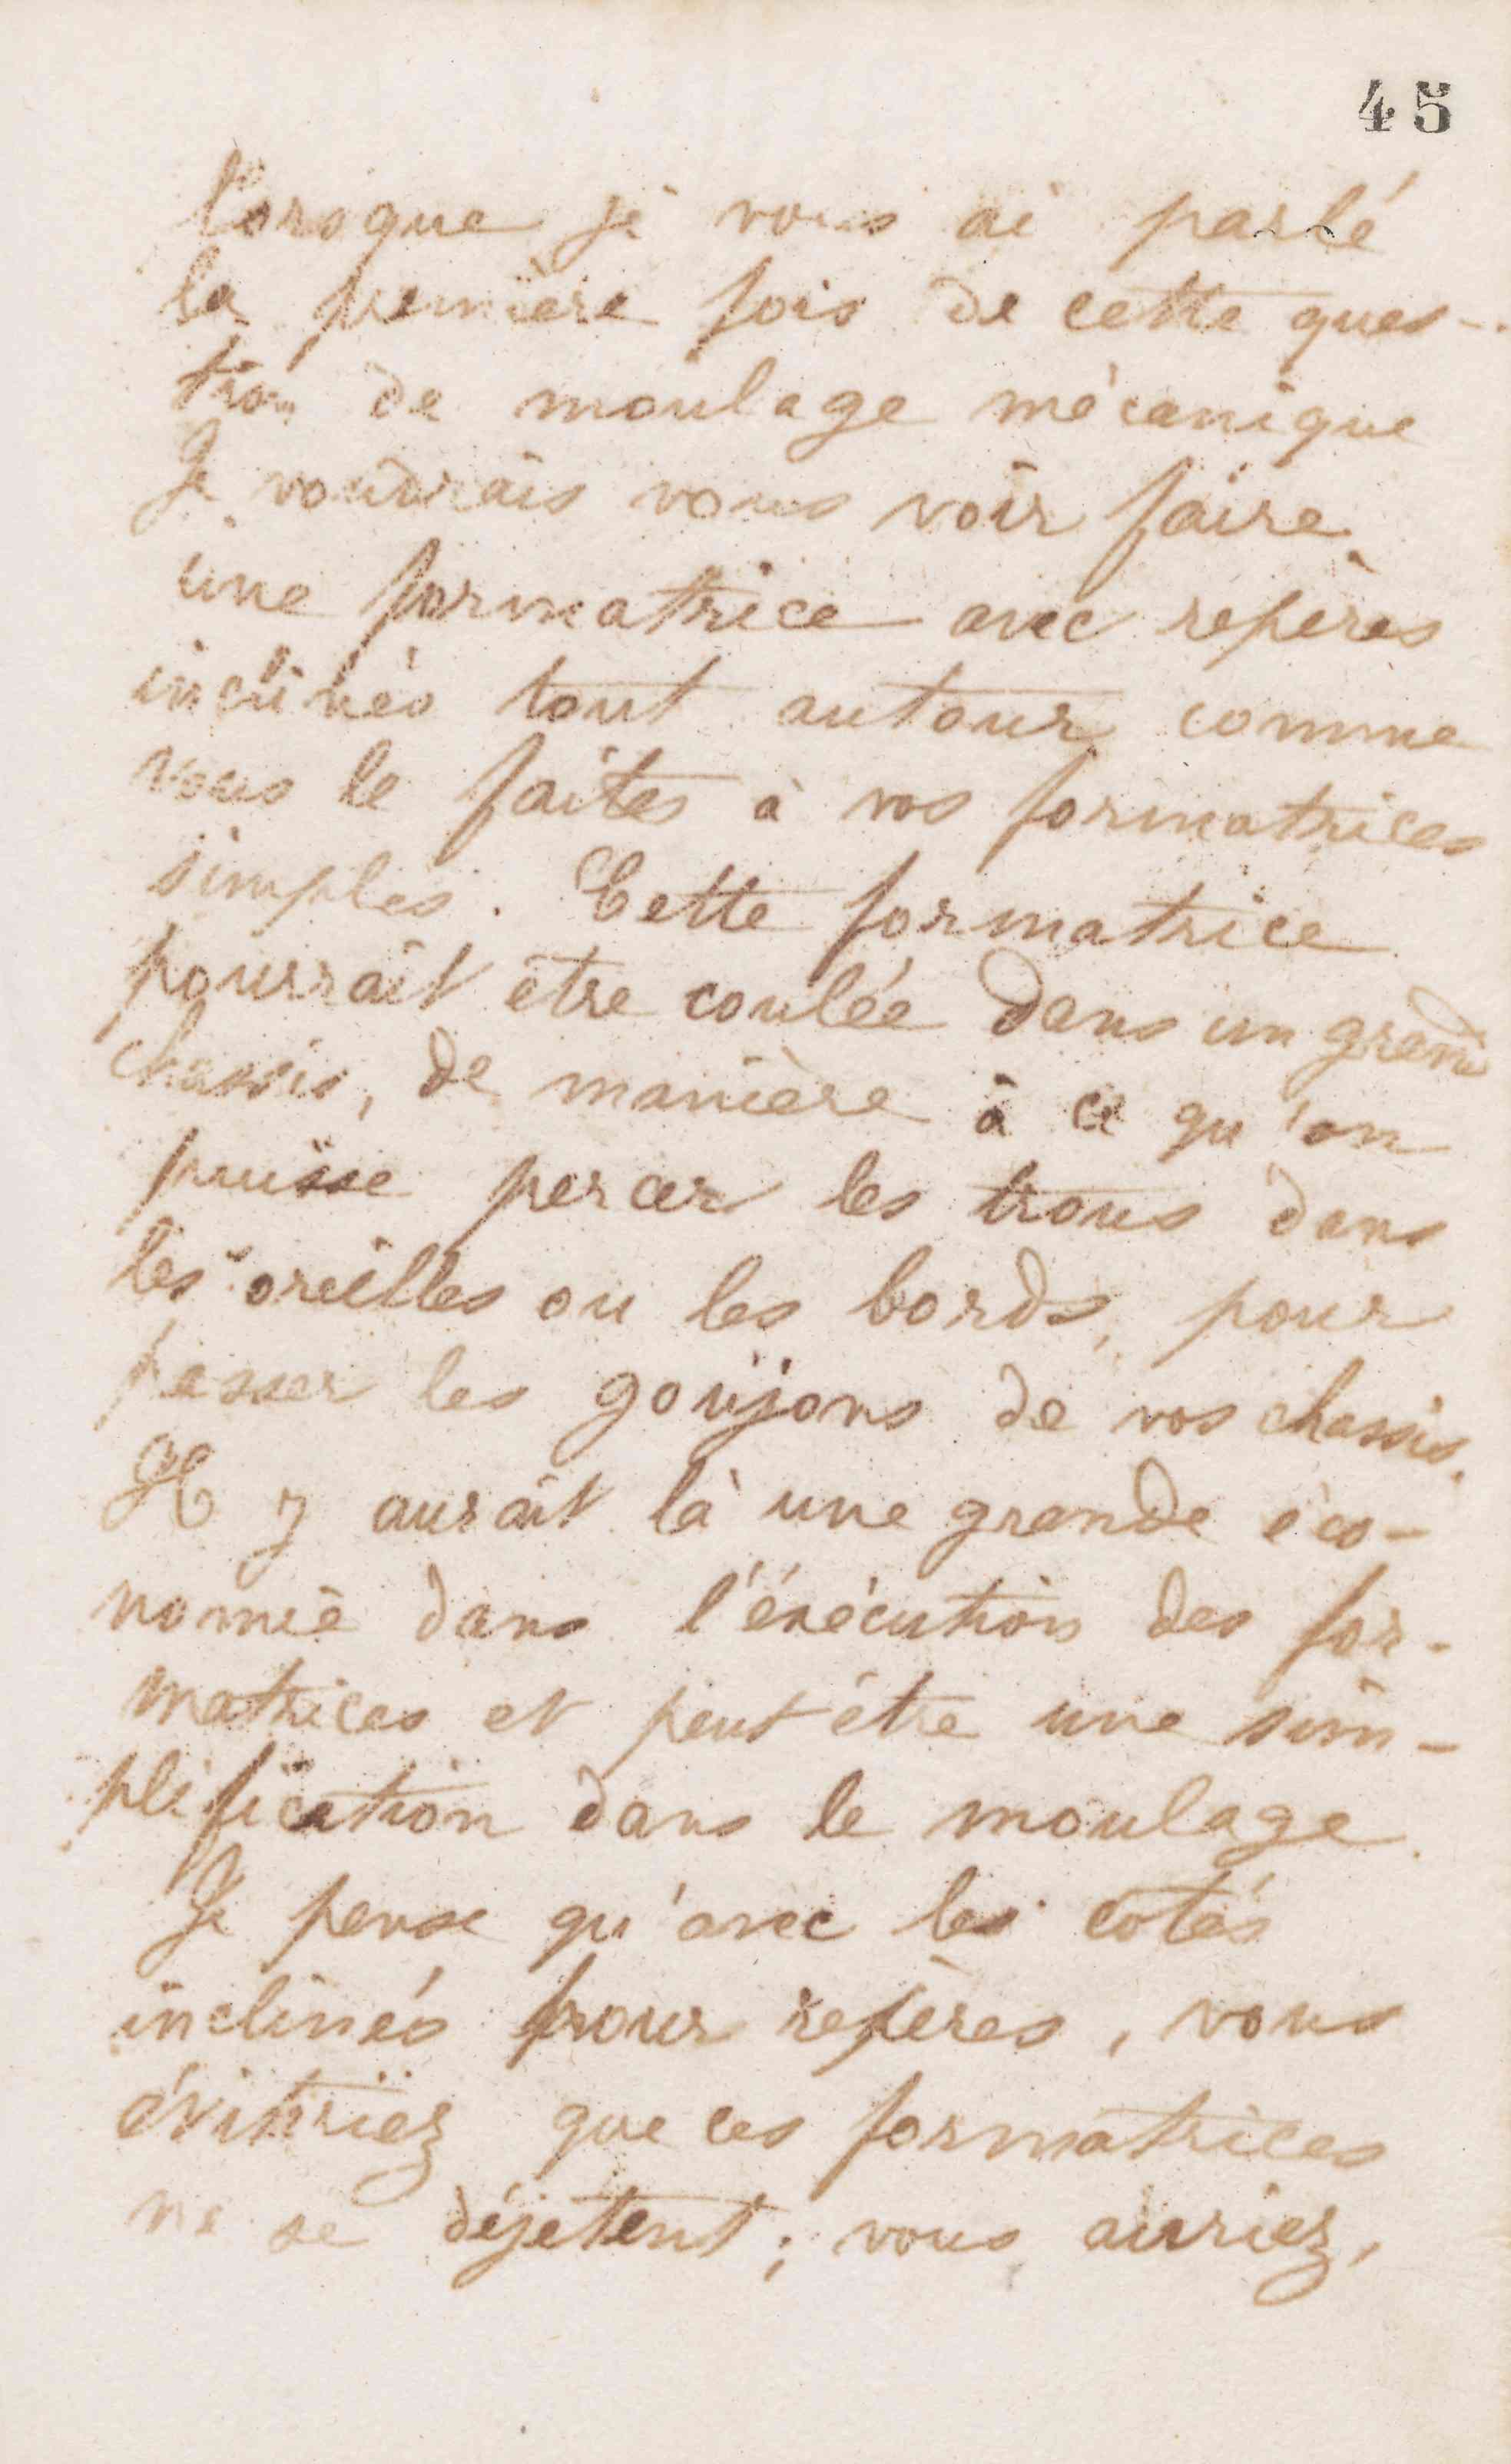 45
lorsque je vous ai parlé
la première fois de cette ques-
tion de moulage mécanique
Je voudrais vous voir faire
une formatrice avec repères
inclinés tout autour comme
vous le faites à vos formatrices
simples. Cette formatrice
pourrait être coulée dans un grand
chassis, de manière à ce qu'on
puisse percer les trous dans
les oreilles ou les bords, pour
passer les goujons de vos chassis.
Il y aurait là une grande éco-
nomie dans l'éxécution des for-
matrices et peut être une sim-
plification dans le moulage.
Je pense qu'avec les cotés
inclinés pour repères, vous
éviteriez que ces formatrices
ne se déjetent; vous auriez,